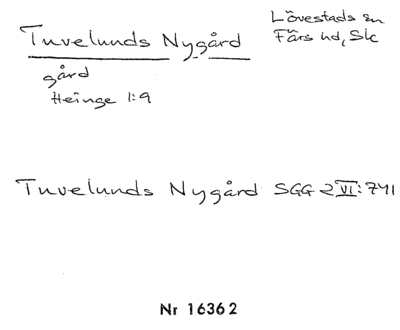 Tuvelunds Nygård
Lövestads sn
Färs hd, Sk
gård
Heinge 1:9
Tuvelunds Nygård SGG 2 VI: 741
Nr 16362